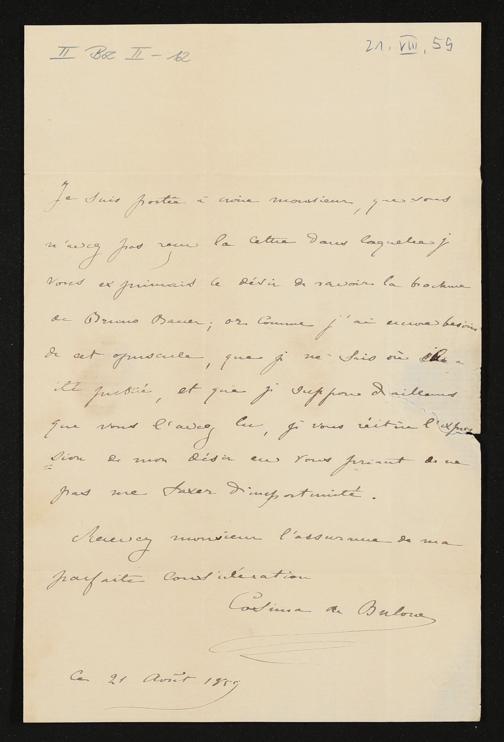 II Bz II - 12
21. VIII. 59
Je suis portée à croire monsieur, que vous
n'avez pas reçu la lettre dans laquelle je
vous exprimais le désir de ravoir la brochure
de Bruno Bauer; or comme j'ai encore besoin
de cet opuscule, que je ne sais où il a
été publié, et que je suppose d'ailleurs
que vous l'avez lu, je vous réitère l'expres
sion de mon désir en vous priant de ne
pas me taxer d'importunité.
Recevez monsieur l'assurance de ma
parfaite considération
Cosima de Bulow
Ce 21 Août 1859